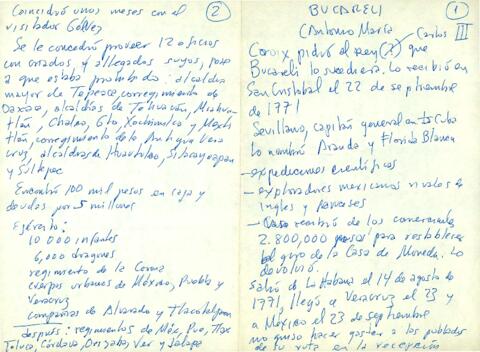 1
BUCARELI
(Antonio María)
Carlos III
Croix pidió al rey (?) que
Bucareli lo sucediera. Lo recibió en
San Cristóbal el 22 de septiembre
de 1771
Sevillano, capitán general en Cuba
Lo nombró Aranda y Florida Blanca
— expediciones científicas
— exploradores mexicanos rivales de
ingles y
— recibió de los comerciantes
2.800,000 pesos para restablecer
el giro de la Casa de Moneda. Lo
devolvió.
salió de La Habana el 14 de agosto de
1771, llegó a Veracruz el 23 y
a México el 23 de septiembre
no quiso hacer gastar a los poblados
de su ruta en la recepción
2
Coincidió unos meses con el
visitador Gálvez
Se le concedió proveer 12 oficios
con criados, y allegados suyos, pese
a que estaba prohibido: alcaldía
mayor de Tepeaca, corregimiento de
Oaxaca, alcaldías de Tehuacán, Miahua-
tlán, Chalco, Gto, Xochimilco y
tlán, corregimiento de la Antigua Vera
cruz, alcaldías de Huautulco,
y Sultepec
Encontró 100 mil pesos en caja y
deudas por 5 millones
Ejército:
10 000 infantes
6,000 dragones
regimiento de la Corona
cuerpos urbanos de México, Puebla y
Veracruz
compañías de Alvarado y Tlacotalpan
después: regimientos de Méx, Pue, Tlax
Toluca, Córdova, Orizaba, Ver y Jalapa